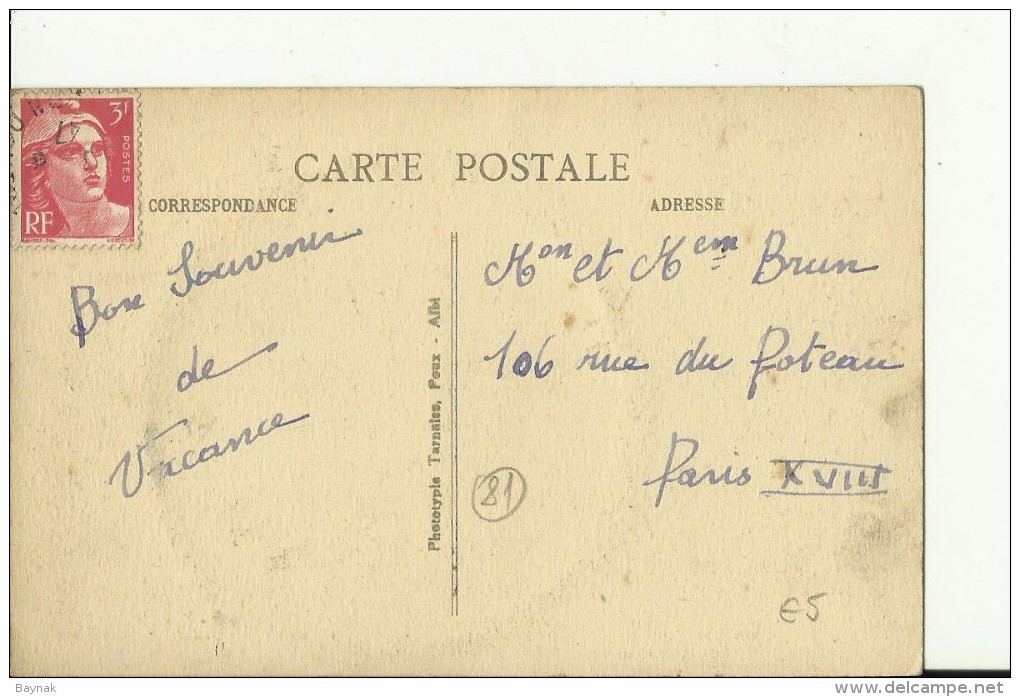 3f
POSTES
47
RF
CARTE POSTALE
CORRESPONDANCE
ADRESSE
Bon Souvenir
de
Vacance
Phototypie Tarnaise, Poux - Albi
Mon et Mem Brun
106 rue du Poteau
Paris XVIII
81
€5
Baynak
www.delcampe.net